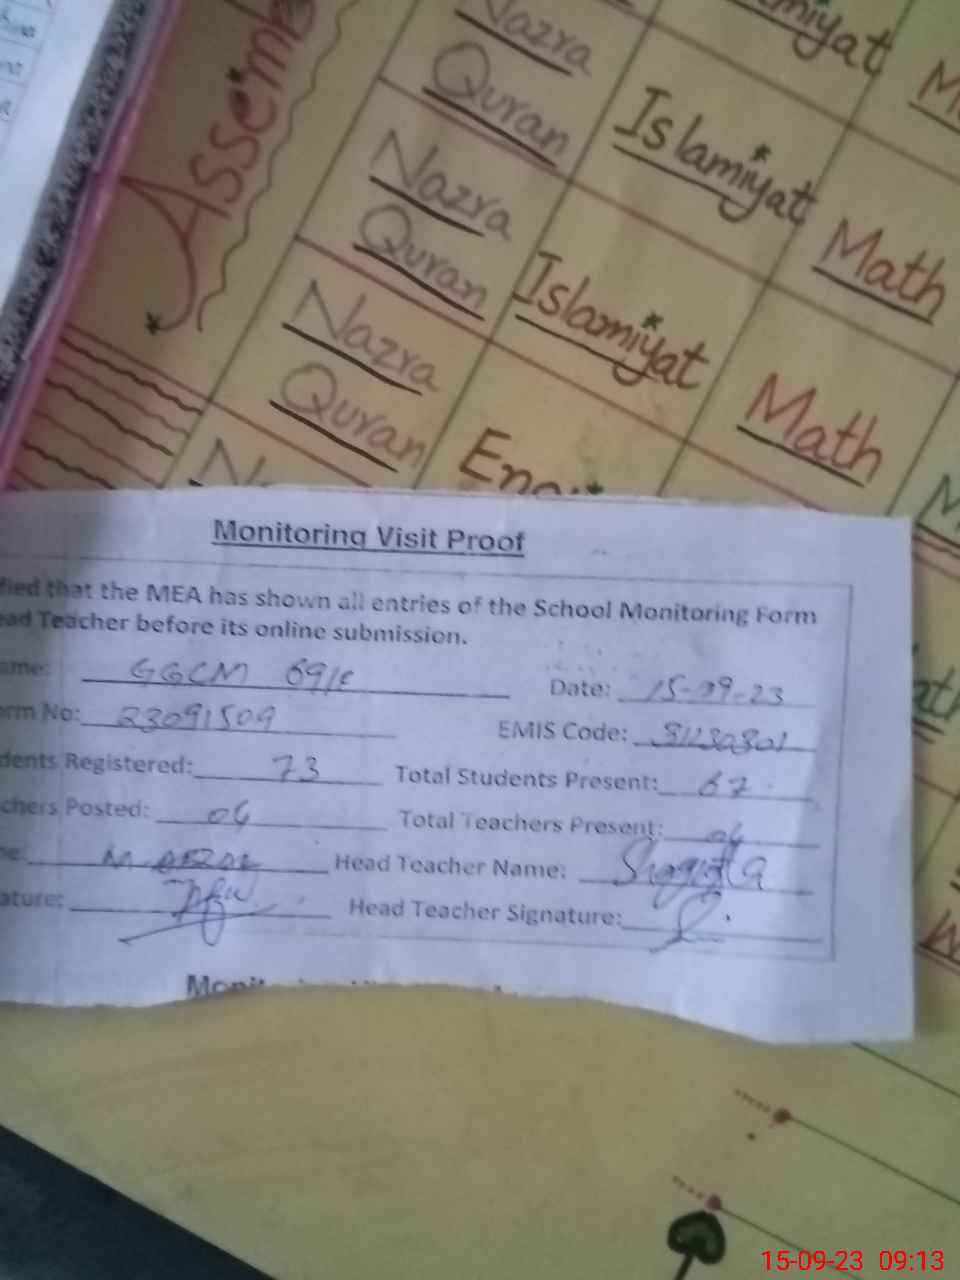 Assemb
Nazra
Quran
miyat
M
Nazra
Quran
Islamiyat
Math
Nazra
Quran
Islamiyat
Math
N
Eng
M
Monitoring Visit Proof
fied that the MEA has shown all entries of the School Monitoring Form
ead Teacher before its online submission.
ame: GGCM 69/E Date: 15-09-23
orm No: 23091509 EMIS Code:
dents Registered: 73 Total Students Present: 67
chers Posted: 04 Total Teachers Present: 04
me: M AFZAL Head Teacher Name: Shagufta
ature: Head Teacher Signature:
15-09-23 09:13